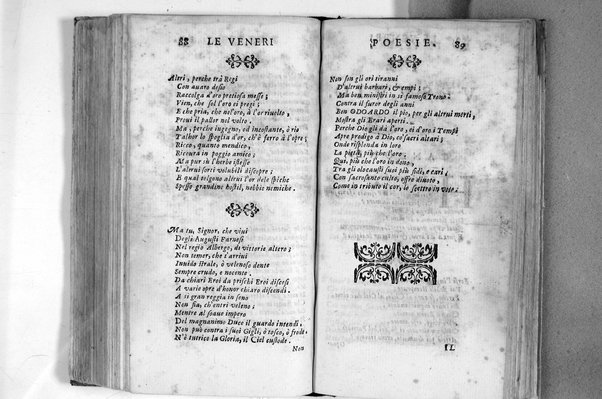 88 LE VENERI
Altri, perche trà Regi
Con auaro desio
Raccolga d'oro pretiosa messe;
Vien, che sol l'oro ei pregi;
E che pria, che nel'oro, à l'or riuolto,
Proui il pallor nel volto.
Ma, perche ingegno, ed incostante, ò rio
Talhor lo spoglia d'or, ch'è ferro à l'opre;
Ricco, quanto mendico,
Ricoura in poggio amico;
Ma pur sù l'herbe istesse
L'alterui sorti volubili discopre;
E qual tolgono altrui l'or dele spiche
Spesso grandine hostil, nebbie nimiche.
Ma tu, Signor, che viui
Degli Augusti Farnesi
Nel regio Albergo, di vittorie altero;
Non temer, che t'arriui
Inuida strale, ò velenoso dente
Sempre crudo, e nocente.
Da chiari Eroi da prischi Eroi discesi
A vario opre d'honor chiaro discendi.
A sì gran reggia in seno
Non sia, ch'entri veleno;
Mentre al soaue impero
Del magnanimo Duce il guardo intendi,
Non può contra i suoi Gigli, ò tosco, ò frode,
N'è nutrice la Gloria, il Ciel custode.
Non
POESIE. 89
Non son gli ori tiranni
D'altrui barbari, & empi;
Ma ben ministri in sì famoso Trono
Contra il furor degli anni
Ben ODOARDO il pio, per gli altrui merti,
Mostra gli Erari aperti.
Perche Dio gli dà l'oro, ei d'oro i Tempi
Apre prodigo à Dio, co'sacri altari;
Onde risplenda in loro
La pietà, più che l'oro.
Qui, più che l'oro in dono,
Tra gli olocausti suoi più fidi, e cari,
Con sacrosanto culto, offro diuoto,
Come in tributo il cor, lo scettro in voto.
IL